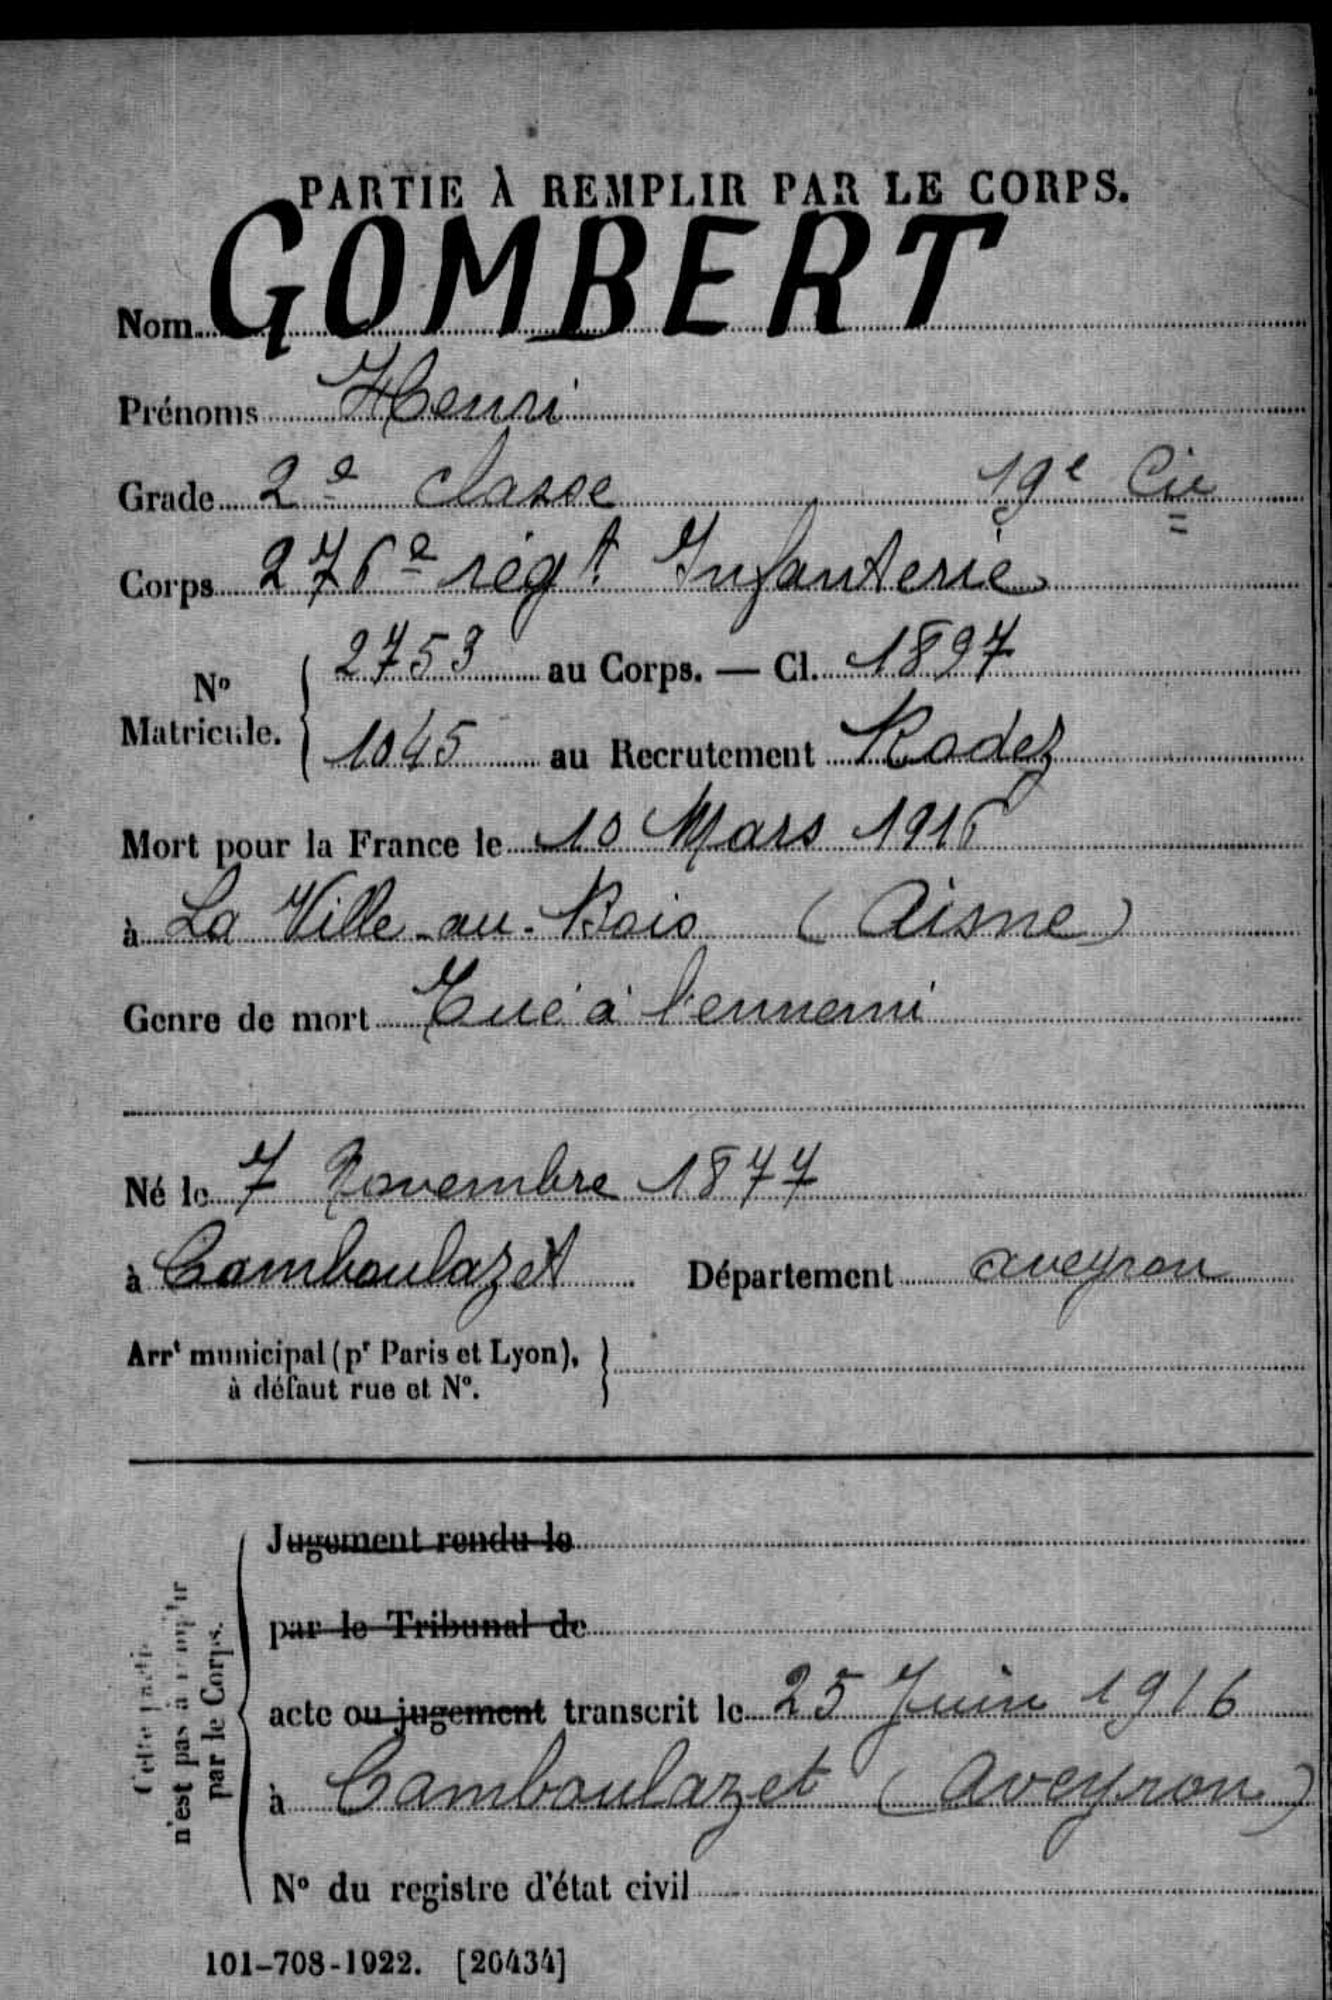 PARTIE À REMPLIR PAR LE CORPS.
Nom GOMBERT
Prénoms Henri
Grade 2e classe 19e Cie
Corps 276e régt Infanterie
No Matricule. 2753 au Corps. — Cl. 1897
1045 au Recrutement Rodez
Mort pour la France le 10 Mars 1916
à La Ville-au-Bois (Aisne)
Genre de mort Tué à l'ennemi
Né le 7 Novembre 1877
à Camboulazet Département Aveyron
Arrt municipal (pr Paris et Lyon),
à défaut rue et No.
Cette partie
n'est pas à remplir
par le Corps.
Jugement rendu le
par le Tribunal de
acte ou jugement transcrit le 25 Juin 1916
à Camboulazet (Aveyron)
No du registre d'état civil
101-708-1922. [26434]